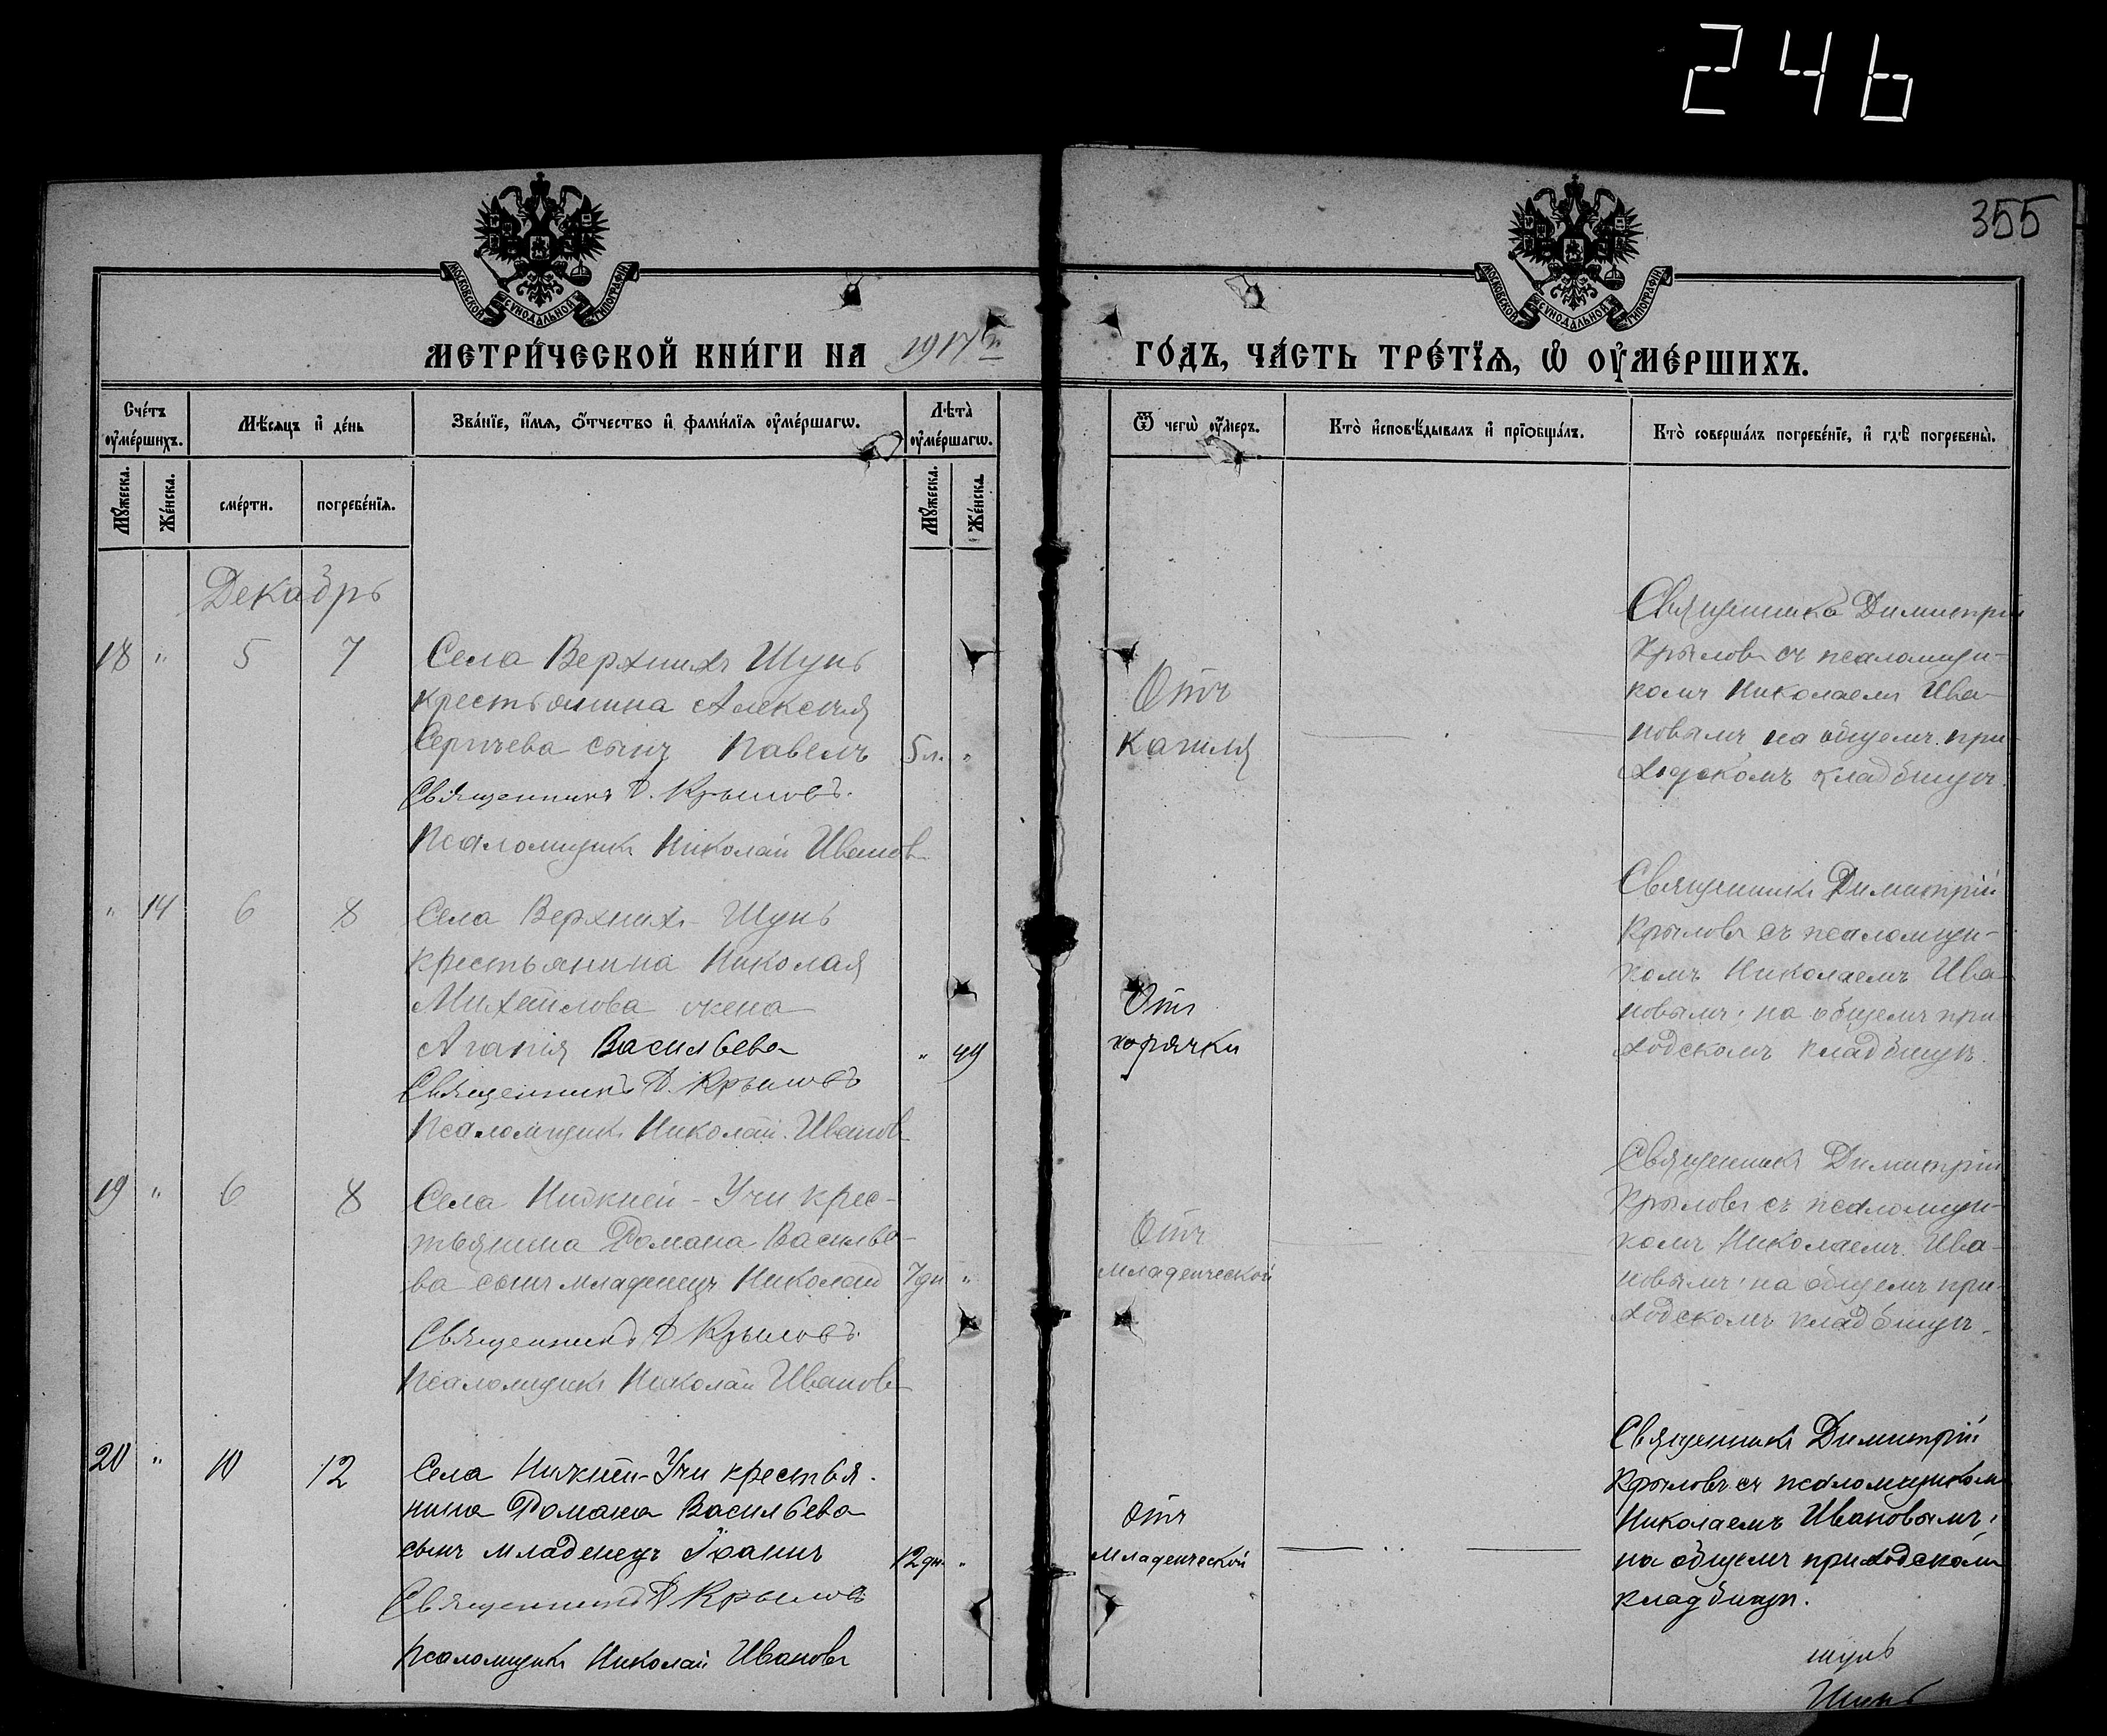 246
355
МОСКОВСКОЙ СѴНОДАЛЬНОЙ ТИПОГРАФІИ
МОСКОВСКОЙ СѴНОДАЛЬНОЙ ТИПОГРАФІИ
МЕТРИ́ЧЕСКОЙ КНИ́ГИ НА 1917 г.
ГО́ДЪ, ЧА́СТЬ ТРЕ́ТЇѦ, Ѡ҆ ОУ҆МЕ́РШИХЪ.
Сче́тъ оу҆ме́ршихъ.
Мѣ́сяцъ и҆ де́нь
Зва́нїе, и҆́мѧ, ѻ҆́тчество и҆ фами́лїѧ оу҆ме́ршагѡ.
Лѣта̀ оу҆ме́ршагѡ.
Ѿ чегѡ̀ оу҆́меръ.
Кто̀ и҆сповѣ́дывалъ и҆ прїѻбща́лъ.
Кто̀ соверша́лъ погребе́нїе, и҆ гдѣ̀ погребены̀.
Мꙋ́жеска.
Же́нска.
сме́рти.
погребе́нїѧ.
Мꙋ́жеска.
Же́нска.
Декабрь
18 " 5 7
Села Верхнихъ Шунь
крестьянина Алексѣя
Сергѣева сынъ Павелъ 5 л. "
Священникъ Д. Крыловъ.
Псаломщикъ Николай Ивановъ
Отъ
кашля
Священникъ Димитрій
Крыловъ съ псаломщи-
комъ Николаемъ Ива-
новымъ на общемъ при-
ходскомъ кладбищѣ.
" 14 6 8
Села Верхнихъ-Шунь
крестьянина Николая
Михайлова жена
Агапія Васильева " 49
Священникъ Д. Крыловъ
Псаломщикъ Николай Ивановъ
Отъ
горячки
Священникъ Димитрій
Крыловъ съ псаломщи-
комъ Николаемъ Ива-
новымъ; на общемъ при-
ходскомъ кладбищѣ.
19 " 6 8
Села Нижней-Учи крес-
тьянина Романа Василье-
ва сынъ младенецъ Николай 7 дн "
Священникъ Д Крыловъ.
Псаломщикъ Николай Ивановъ
Отъ
младенческой
Священникъ Димитрій
Крыловъ съ псаломщи-
комъ Николаемъ Ива-
новымъ; на общемъ при-
ходскомъ кладбищѣ.
20 " 10 12
Села Нижней-Учи крестья-
нина Романа Васильева
сынъ младенецъ Іоаннъ 12 дн. "
Священникъ Д Крыловъ
Псаломщикъ Николай Ивановъ
Отъ
младенческой
Священникъ Димитрій
Крыловъ съ псаломщикомъ
Николаемъ Ивановымъ;
на общемъ приходскомъ
кладбищѣ.
шунь
Шунь